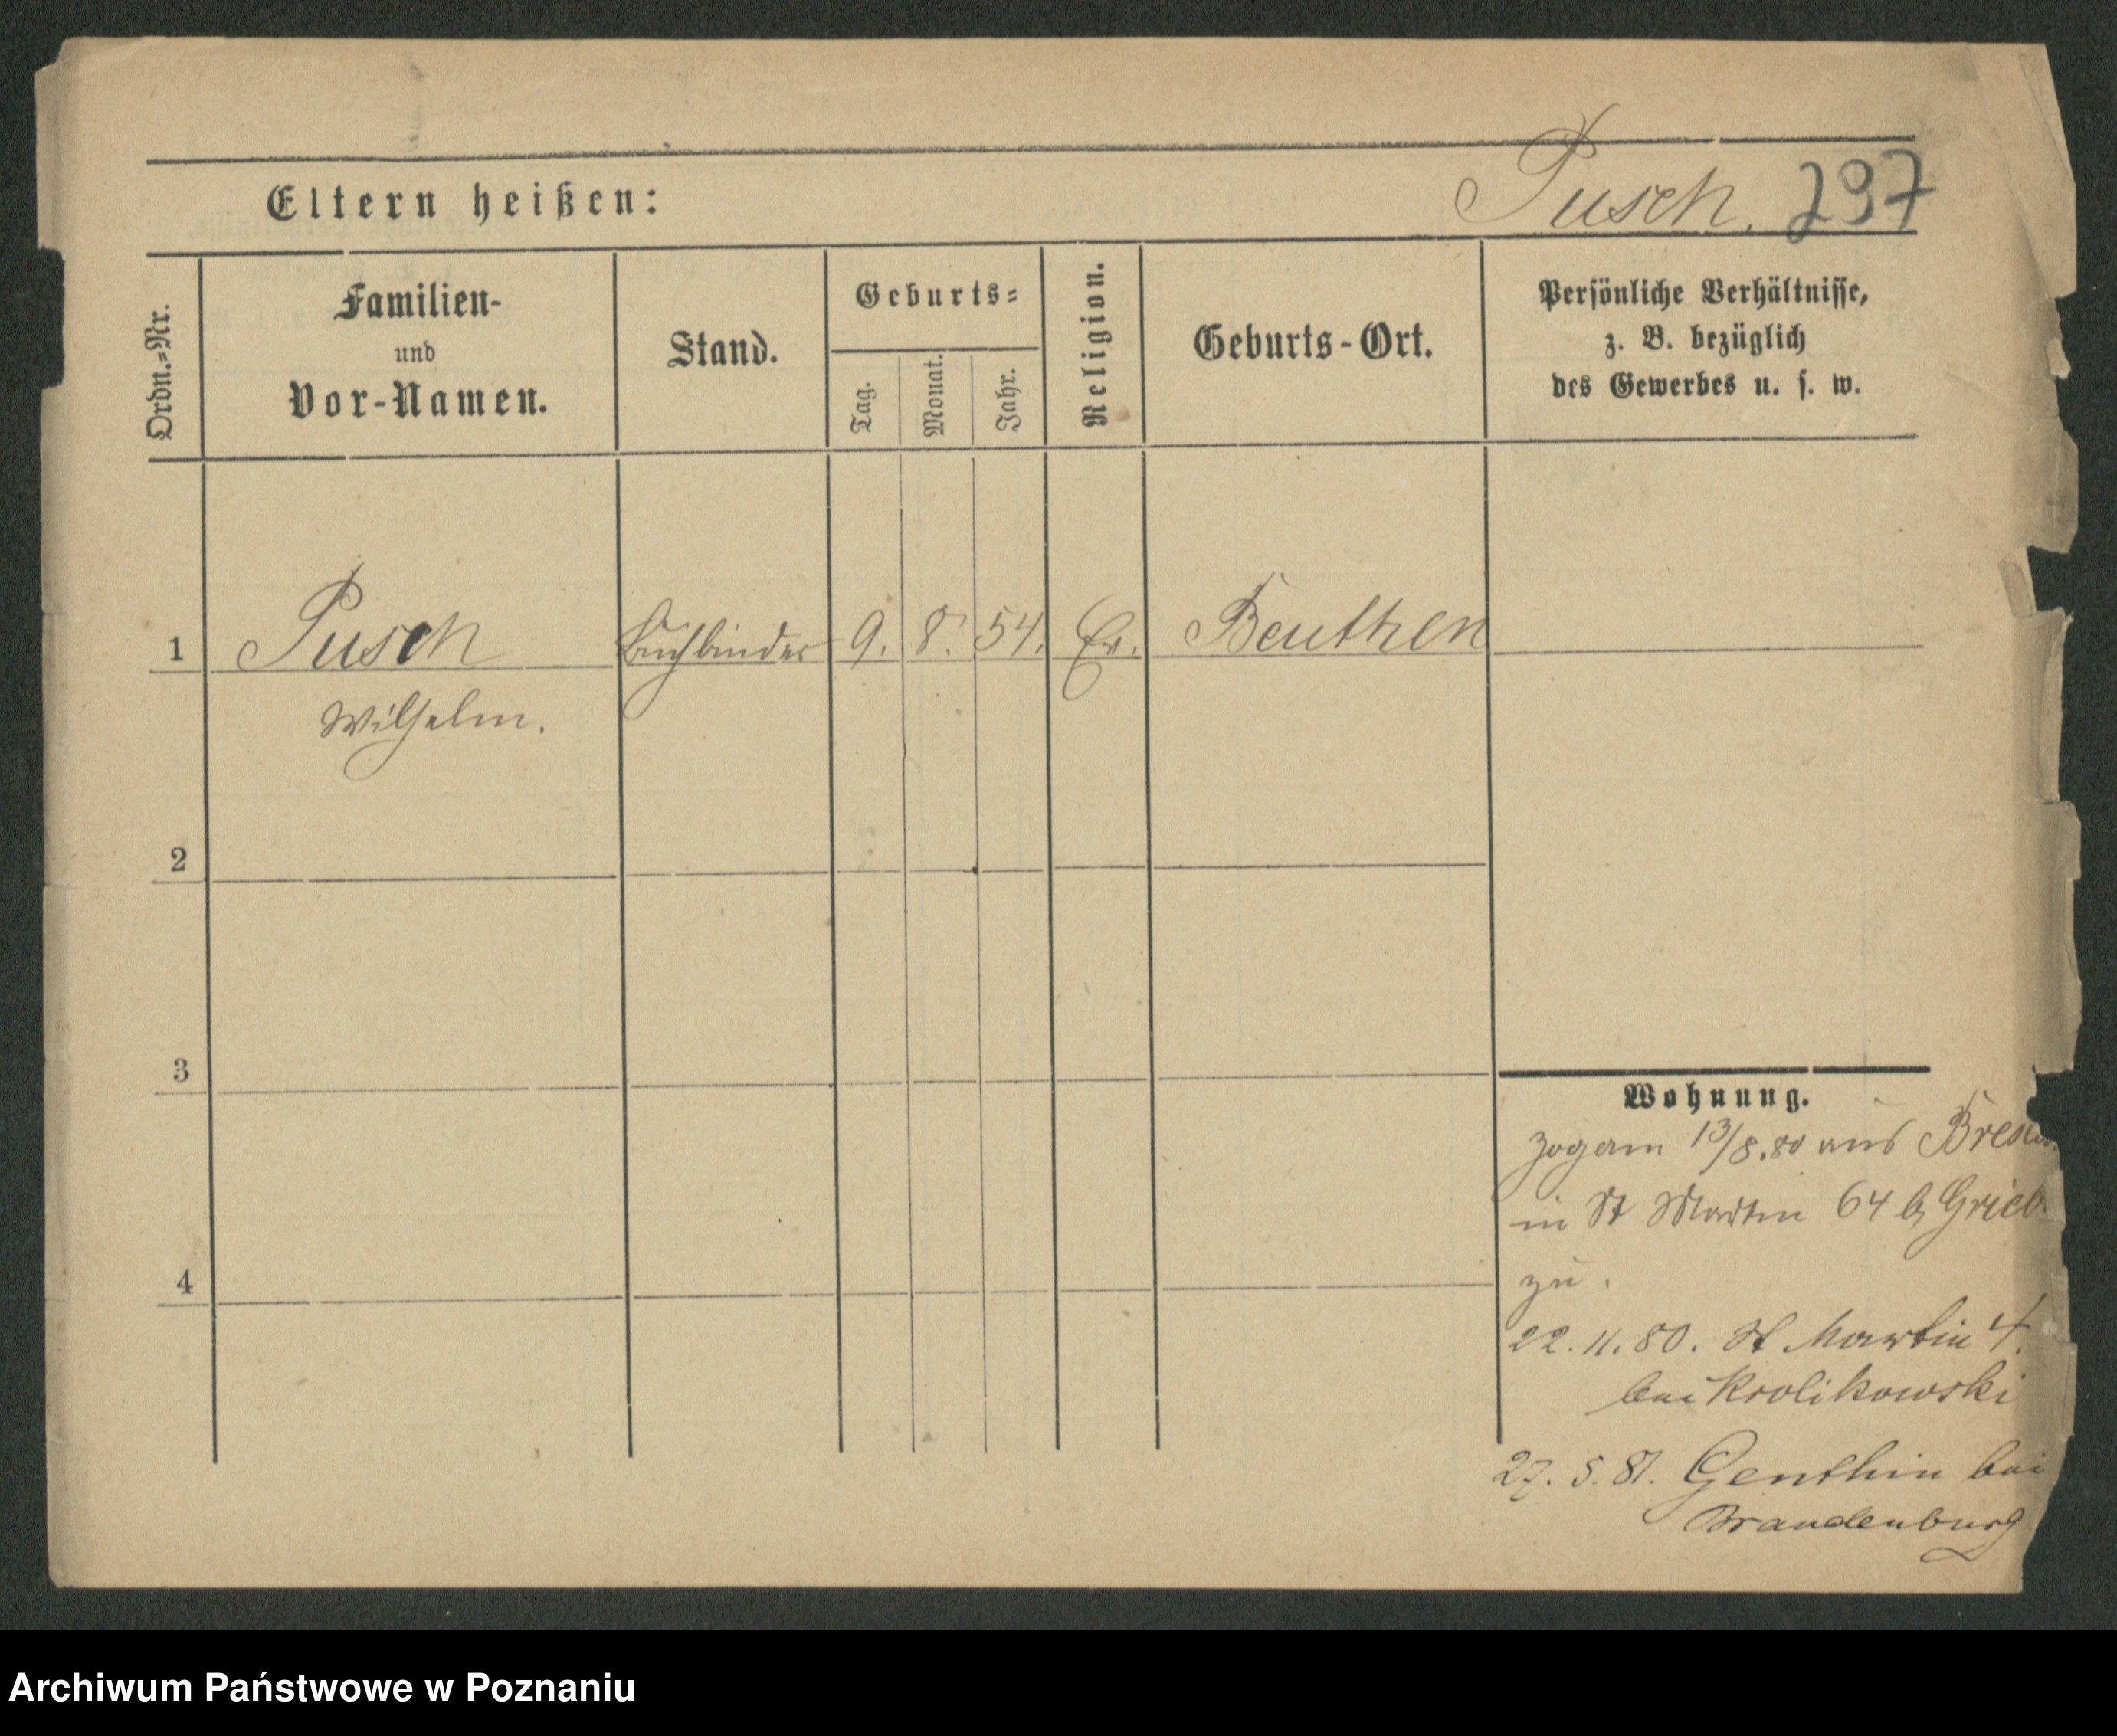 Pusch. 297
Eltern heißen:
Ordn.=Nr.
Familien-
und
Vor-Namen.
Stand.
Geburts=
Tag.
Monat.
Jahr.
Religion.
Geburts-Ort.
Persönliche Verhältnisse,
z. B. bezüglich
des Gewerbes u. s. w.
1 Pusch Buchbinder 9. 8. 54. Ev. Beuthen
Wilhelm.
2
3
4
Wohnung.
zog am 13/8.80 aus
in St Martin 64 b,
zu.
22.11.80. St Martin 4.
bei Krolikowski
27. 5. 81. Genthin bei
Brandenburg
Archiwum Państwowe w Poznaniu